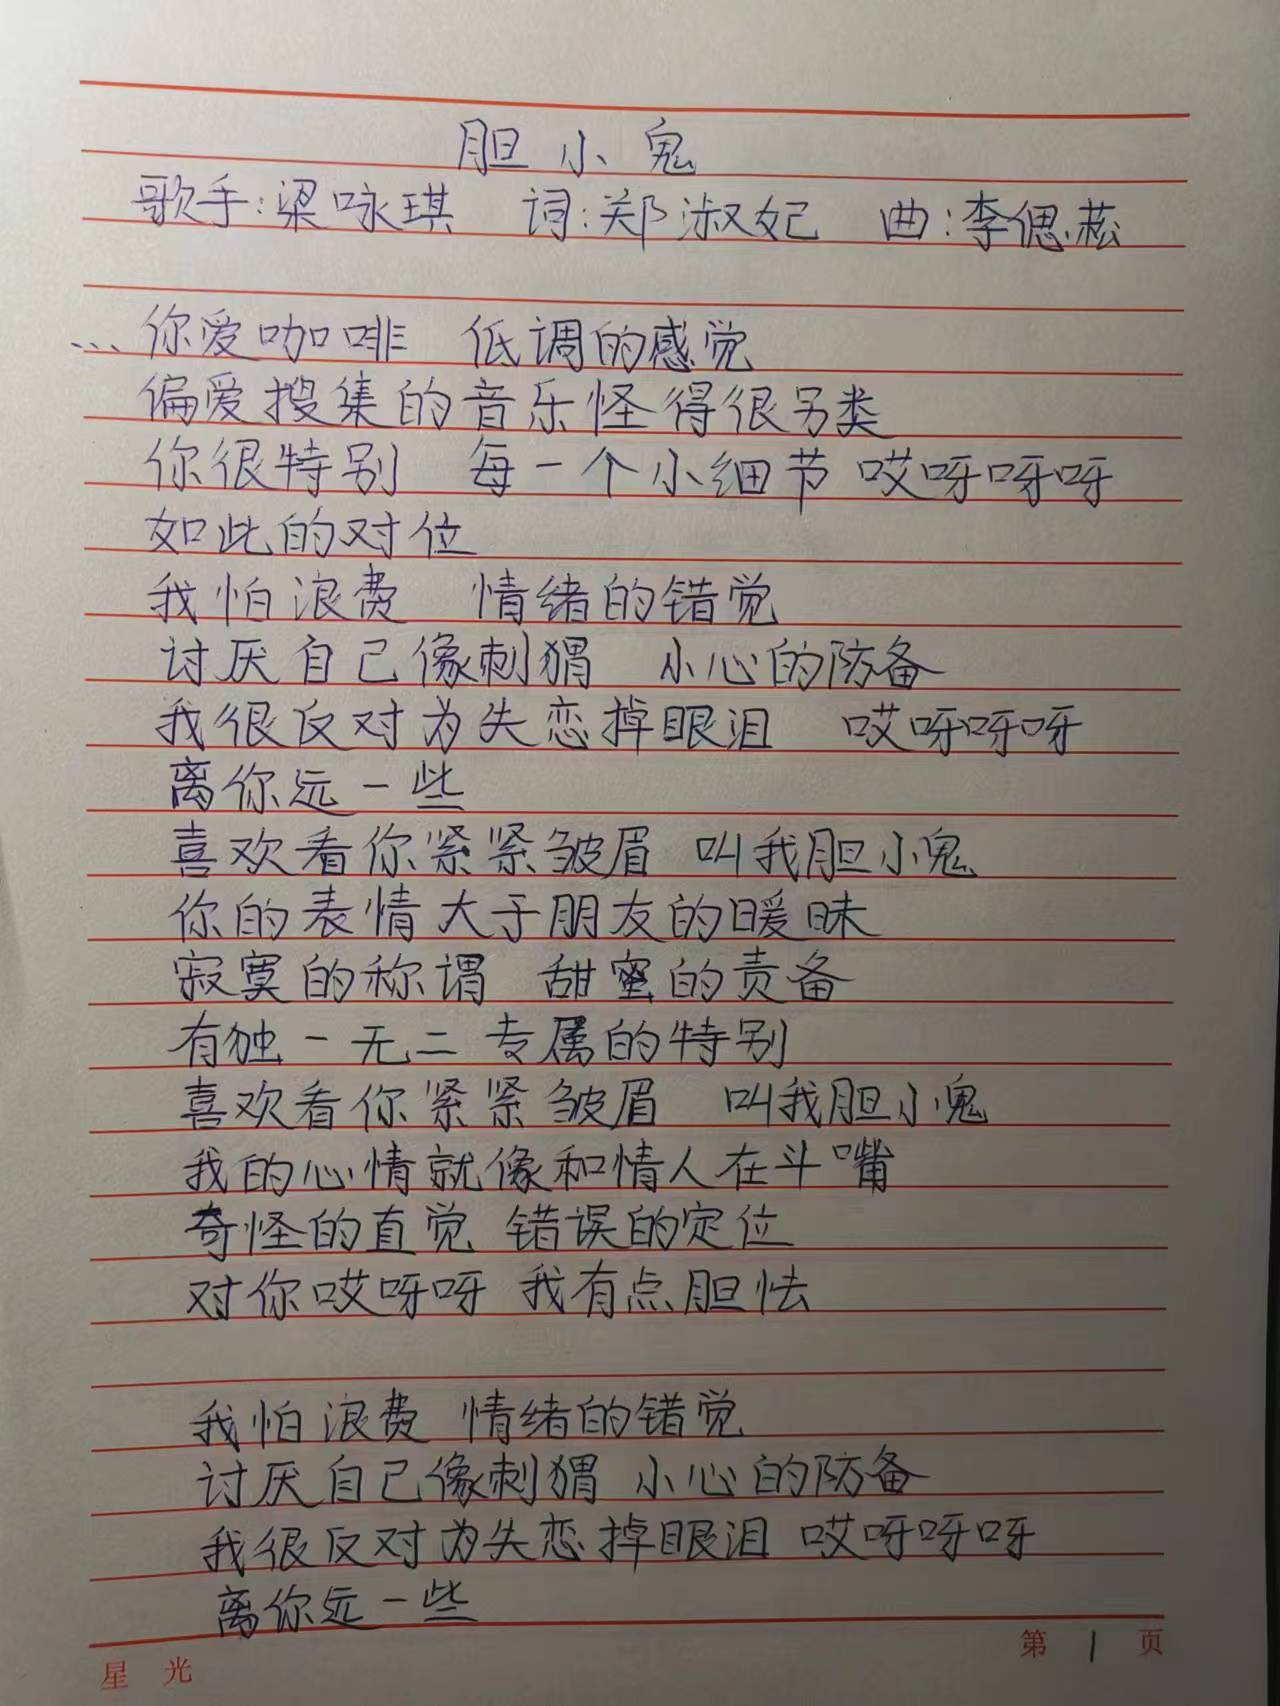 胆小鬼
歌手:梁咏琪 词:郑淑妃 曲:李偲菘
...你爱咖啡 低调的感觉
偏爱搜集的音乐怪得很另类
你很特别 每一个小细节 哎呀呀呀
如此的对位
我怕浪费 情绪的错觉
讨厌自己像刺猬 小心的防备
我很反对为失恋掉眼泪 哎呀呀呀
离你远一些
喜欢看你紧紧皱眉 叫我胆小鬼
你的表情大于朋友的暧昧
寂寞的称谓 甜蜜的责备
有独一无二专属的特别
喜欢看你紧紧皱眉 叫我胆小鬼
我的心情就像和情人在斗嘴
奇怪的直觉 错误的定位
对你哎呀呀 我有点胆怯
我怕浪费 情绪的错觉
讨厌自己像刺猬 小心的防备
我很反对为失恋掉眼泪 哎呀呀呀
离你远一些
星光 第1页